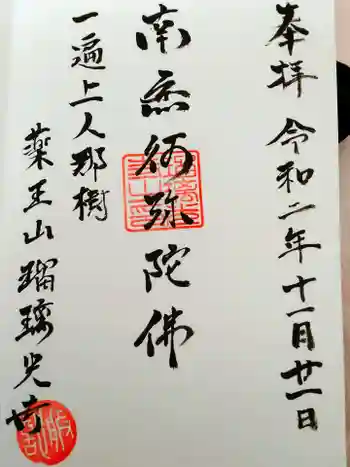 奉拝 令和二年十一月廿一日
南無阿弥陀佛
一遍上人那樹
薬王山瑠璃光寺